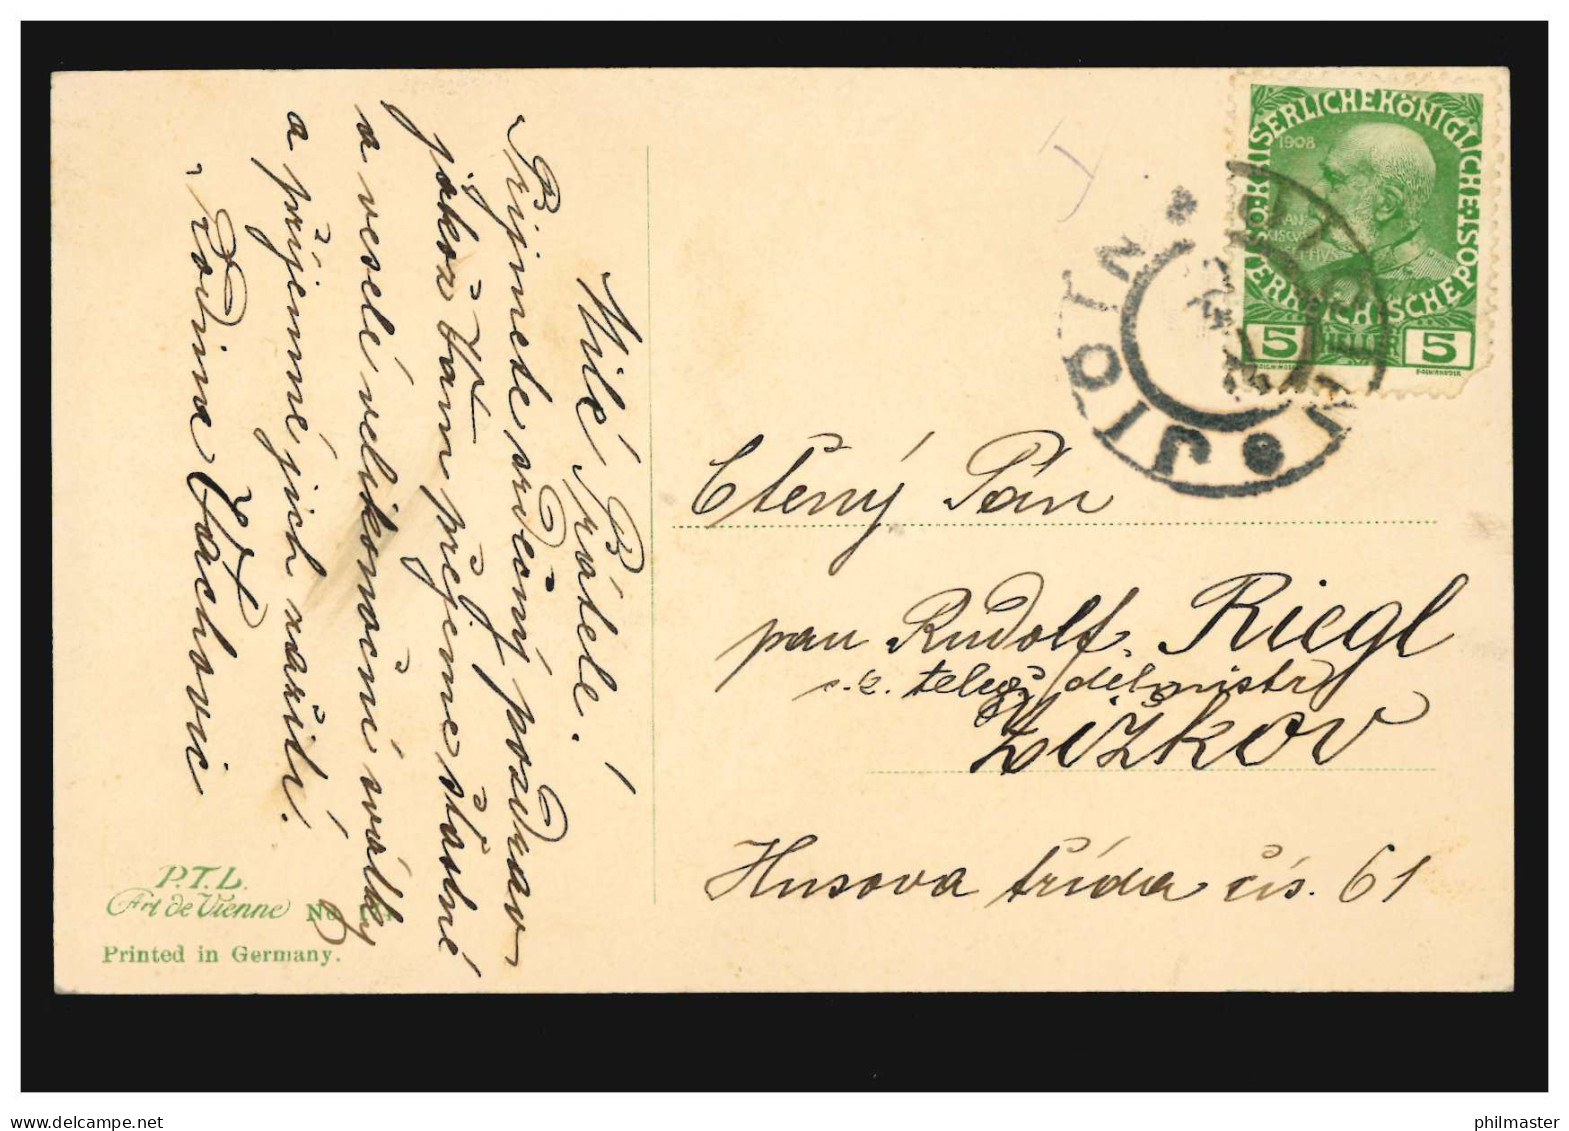 Milé Přátelé!
Přijmete srdečný pozdrav
jakož Vam přejeme šťastné
a veselé velikonoční svátky
a příjemné jich zažití.
Rodina Vachovi
P.T.L.
Art de Vienne No
Printed in Germany.
KAISERLICHE KÖNIGLICHE ÖSTERREICHISCHE POST
1908
5 HELLER 5
JIČÍN
Ctěný Pán
pan Rudolf Riegl
telegr
Žižkov
Husova třída čís. 61
philmaster